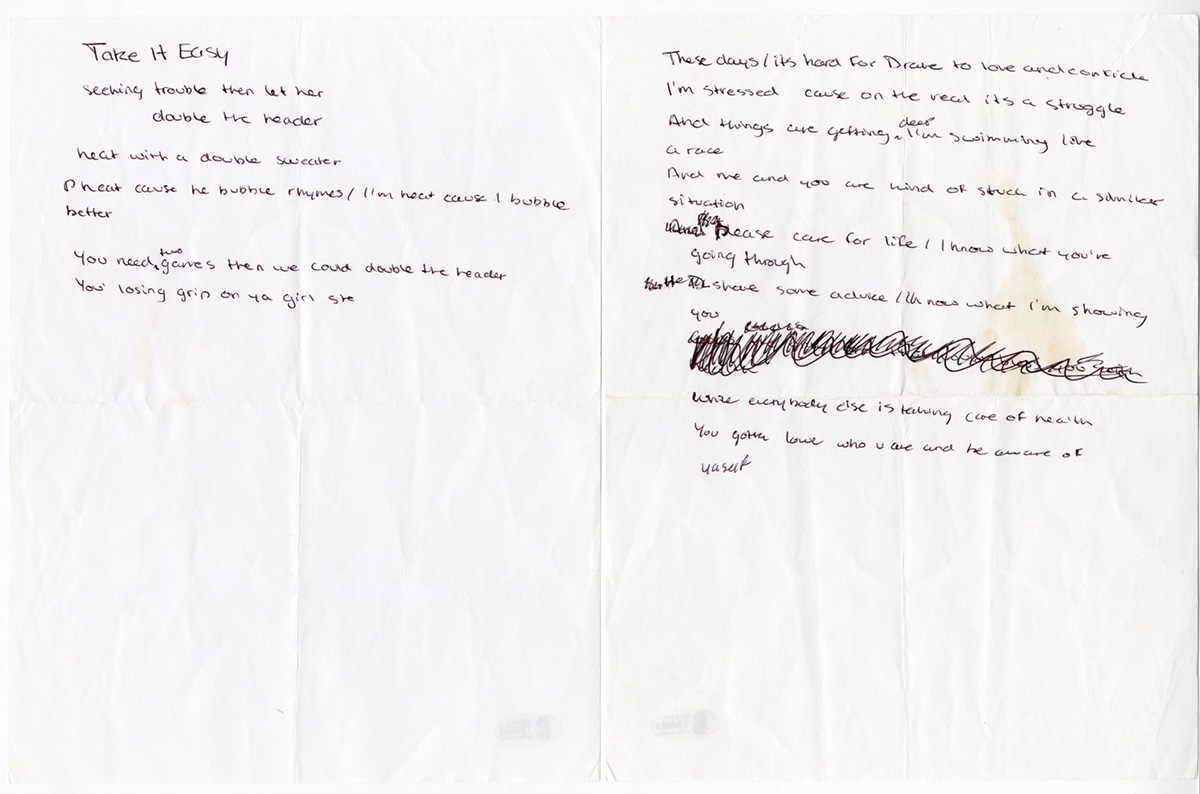 Take It Easy
seeking trouble then let her
double the header
heat with a double sweater
P heat cause he bubble rhymes / I'm heat cause I bubble
better
You need two games then we could double the header
You' losing grip on ya girl she
These days / its hard for Drake to love and confide
I'm stressed cause on the real its a struggle
And things are getting deep I'm swimming like
a race
And me and you are kind of stuck in a similar
situation
please care for life / I know what you're
going through
share some advice / know what I'm showing
you
While everybody else is taking care of health
You gotta love who u are and be aware of
yaself